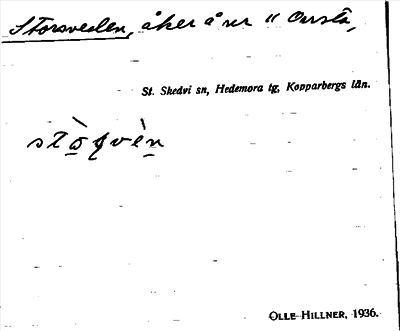 Storsveden, åker å nr 11 Onsta,
St. Skedvi sn, Hedemora tg, Kopparbergs län.
OLLE HILLNER, 1936.